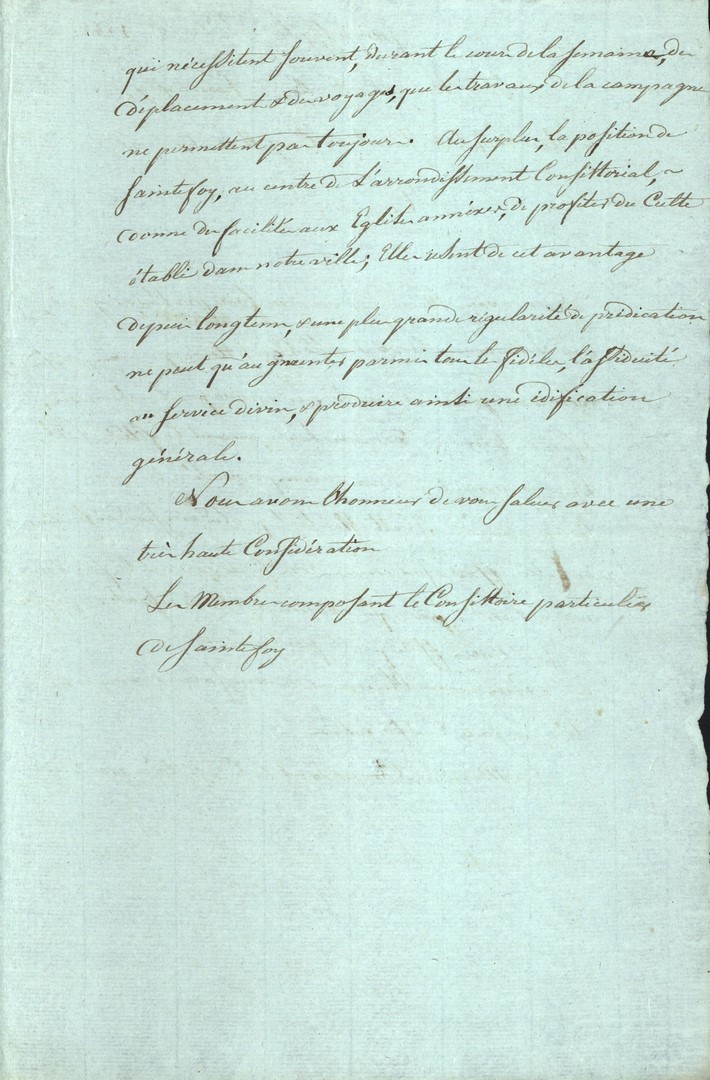 qui nécessitent souvent, durant le cour de la semaine, des
déplacements & des voyages, que les travaux de la campagne
ne permettent pas toujours. Au surplus, la position de
Sainte foy, au centre de l'arrondissement Consistorial, a
donné des facilités aux Eglises annéxes, de profiter du Culte
établi dans notre ville; Elles usent de cet avantage
depuis longtems, & une plus grande régularité de prédication
ne peut qu'augmenter parmi tous les fidéles, l'assiduité
au service divin, & produire ainsi une édification
générale.
Nous avons l'honneur de vous saluer avec une
très haute Considération
Les Membres composant le Consistoire particulier
de Sainte foy